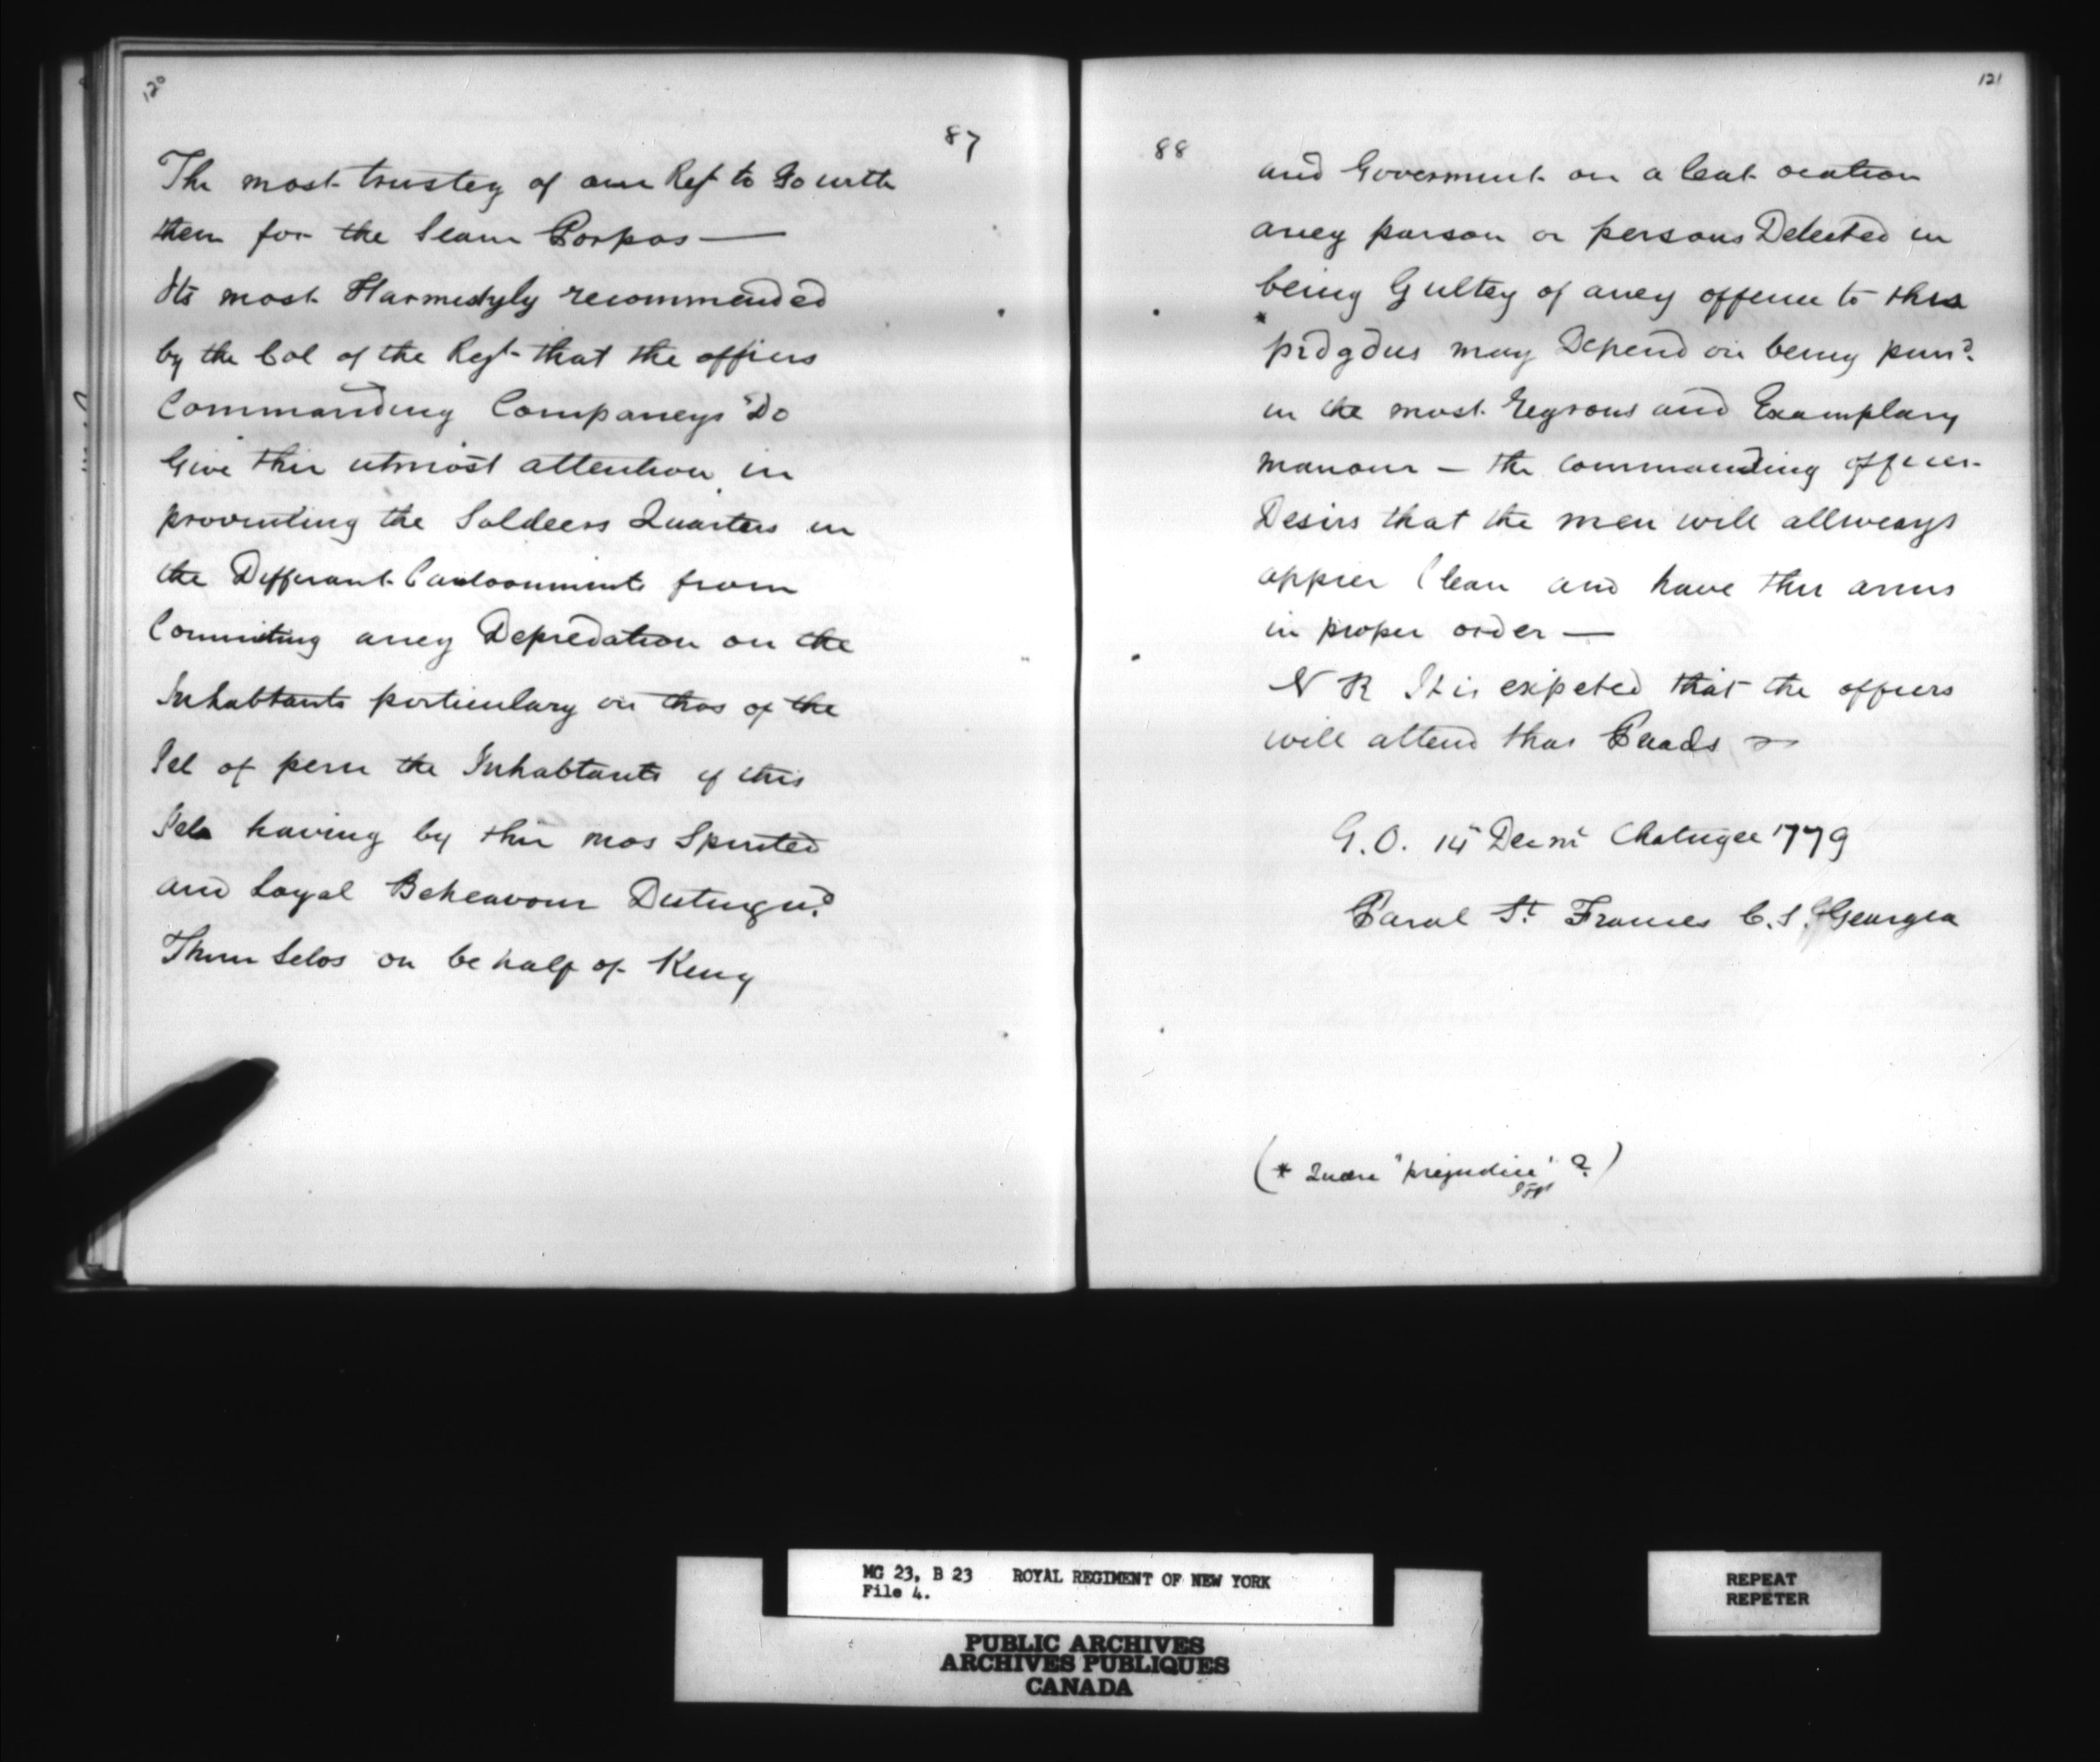 120
87
The most trustey of our Ref to Go with
them for the Seam Porpos —
Its most Harmestyly recommended
by the Col of the Regt that the offiers
Commanding Companeys Do
Give thir utmost attention in
proventing the Soldeers Quarters in
the Differant Cantoonments from
Commiting aney Depredation on the
Inhabtants perticulary on thos of the
Isl of peru the Inhabtants of this
Isla having by thir mos Spirited
and Loyal Beheavour Distingud
Them Selos on be half of King
121
88
and Goverment on a leat ocation
aney parson or persons Detected in
being Gultey of aney offence to this
* pidgdus may Depend on being pund.
in the most Regrous and Examplary
manour — the commanding officer
Desirs that the men will allweays
appier Clean and have thir arms
in proper order —
N B It is expeted that the offiers
will attend thar Prads
G.O. 14 Decmr Chatugee 1779
Parol St. Frances C.S. Georgia
(* Quære "prejudice" ?)
MG 23, B 23 ROYAL REGIMENT OF NEW YORK
File 4.
PUBLIC ARCHIVES
ARCHIVES PUBLIQUES
CANADA
REPEAT
REPETER